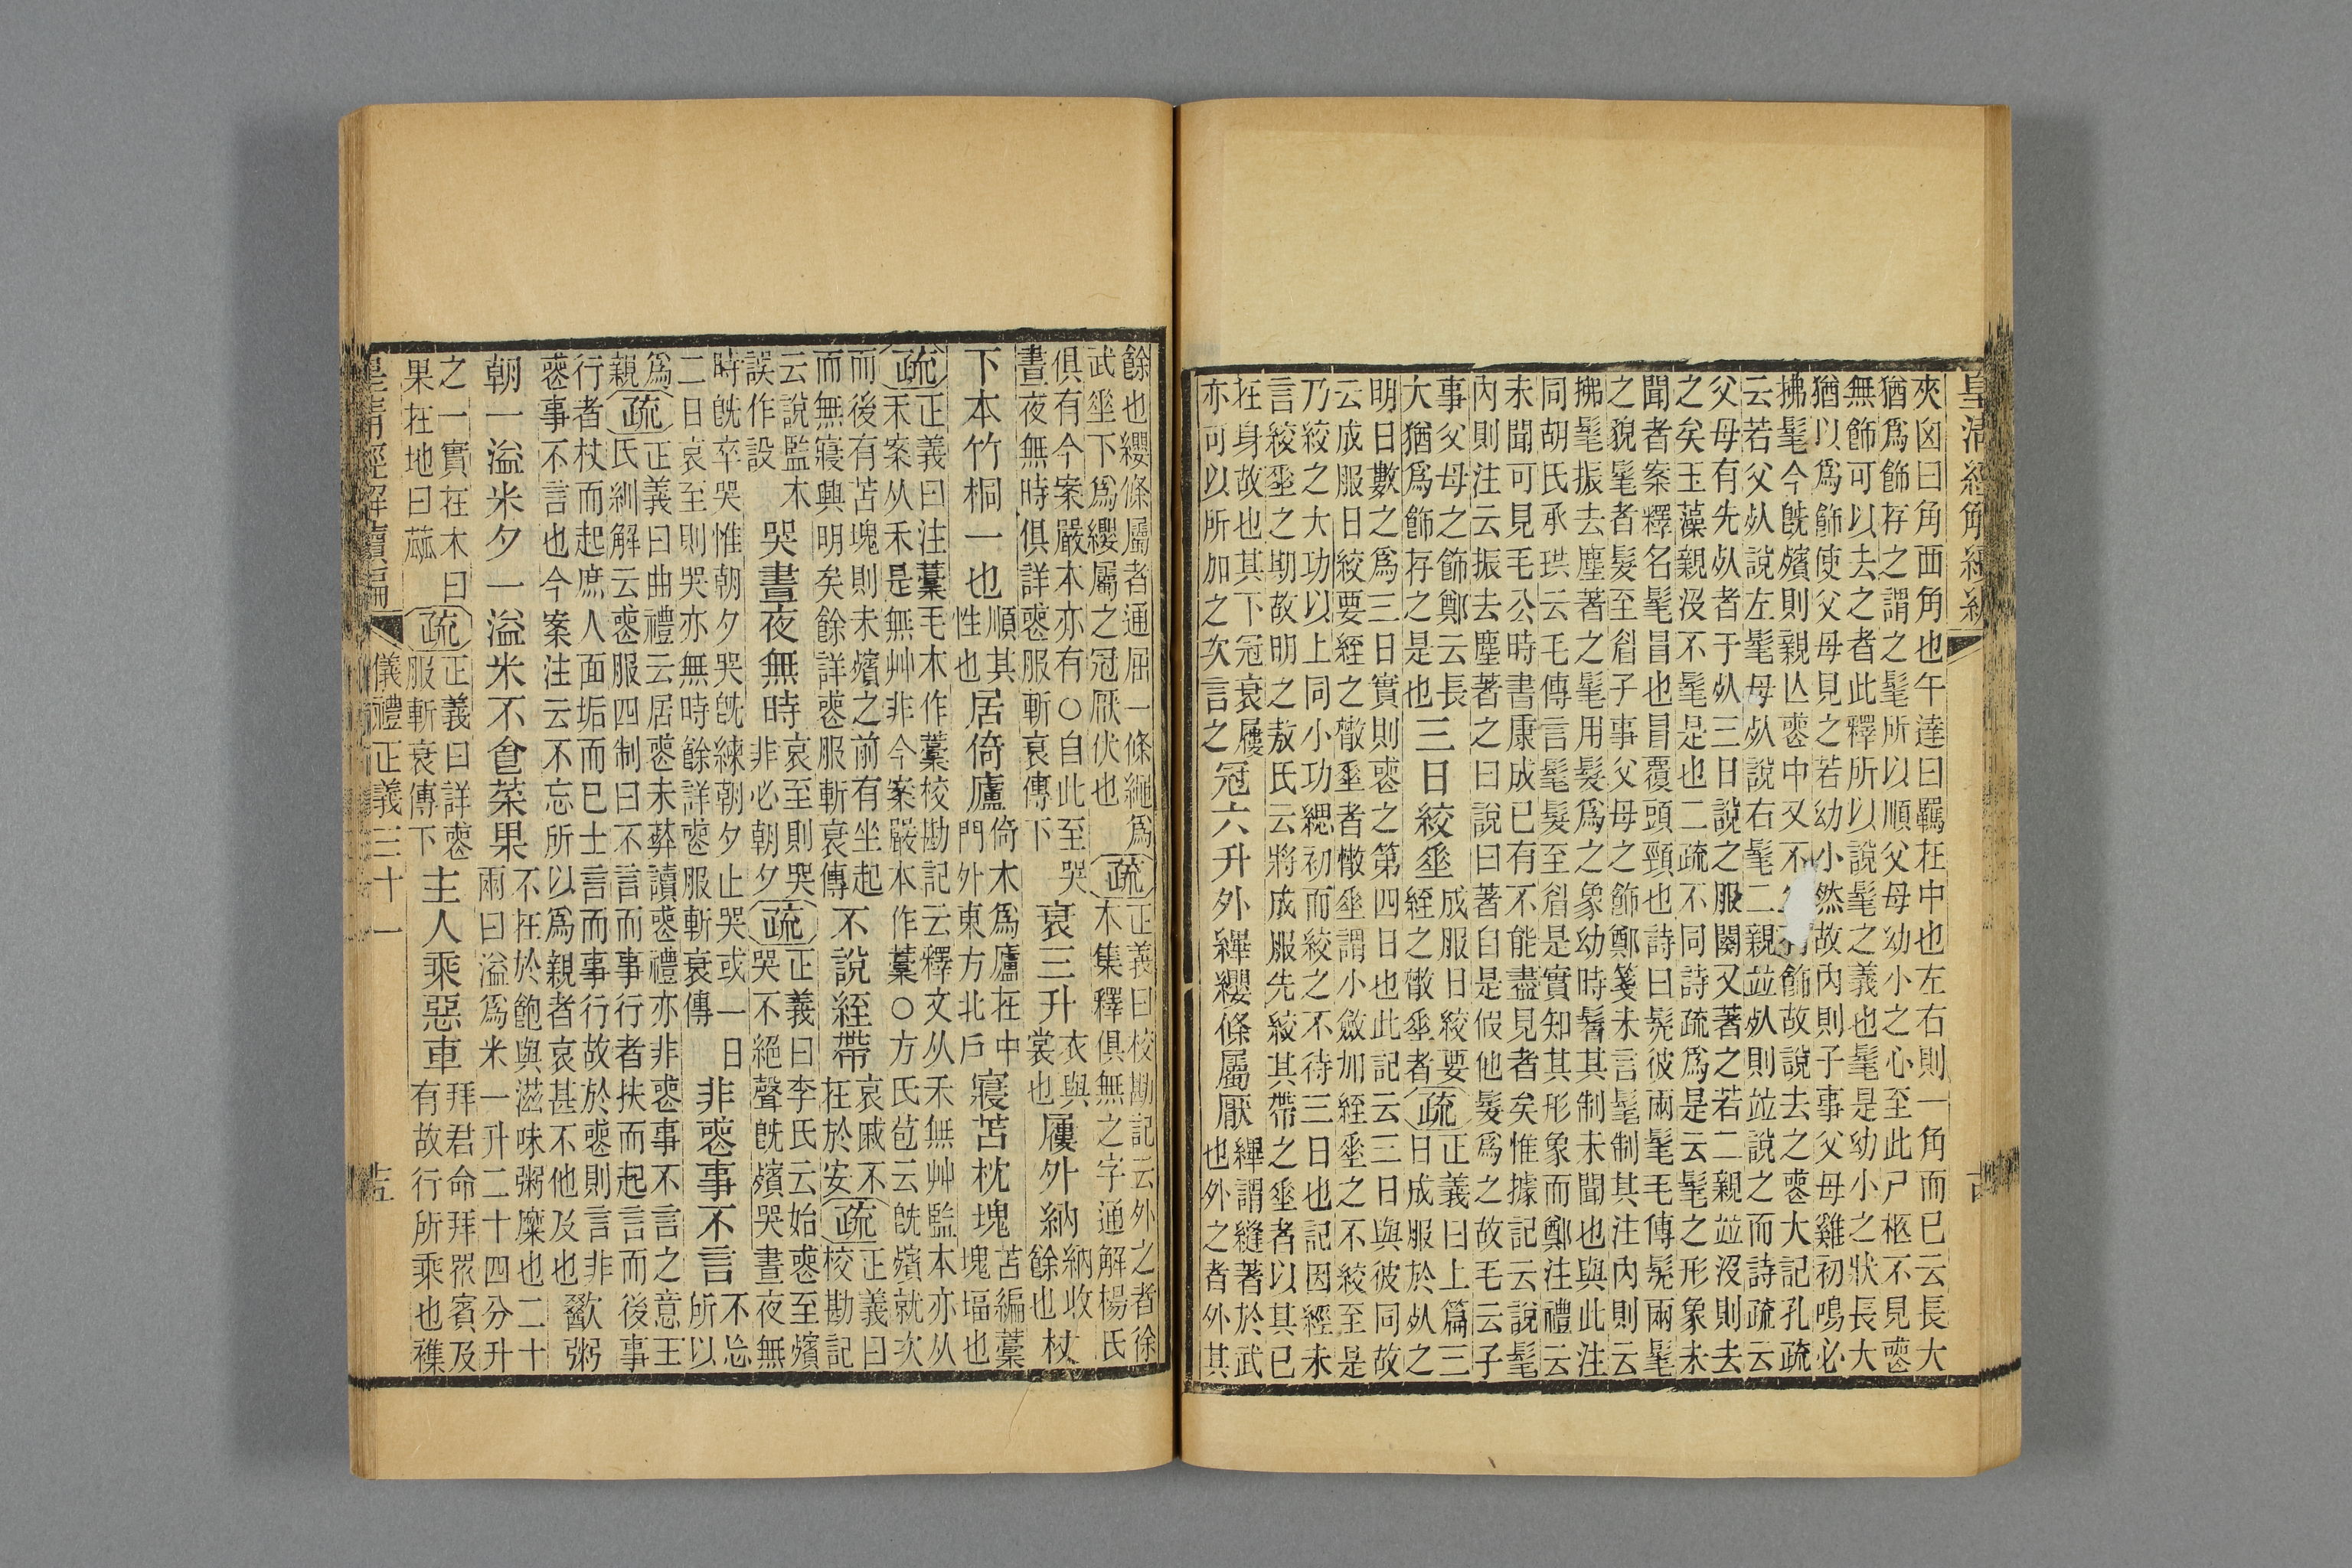 皇清經解續編
夾囟曰角兩角也午達曰羈在中也左右則一角而已云長大
猶爲飾存之謂之髦所以順父母幼小之心至此尸柩不見喪
無飾可以去之者此釋所以說髦之義也髦是幼小之狀長大
猶以爲飾使父母見之若幼小然故內則子事父母雞初鳴必
拂髦今旣殯則親亾喪中又不飾故說去之喪大記孔疏
云若父死說左髦母死說右髦二親並死則並說之而詩疏云
父母有先死者于死三日說之服闋又著之若二親並沒則去
之矣玉藻親沒不髦是也二疏不同詩疏爲是云髦之形象未
聞者案釋名髦冒也冒覆頭頸也詩曰髧彼兩髦毛傳髧兩髦
之貌髦者髮至眉子事父母之飾鄭箋未言髦制其注內則云
拂髦振去塵著之髦用髮爲之象幼時鬌其制未聞也與此注
同胡氏承珙云毛傳言髦髮至眉是實知其形象而鄭注禮云
未聞可見毛公時書康成已有不能盡見者矣惟據記云說髦
內則注云振去塵著之曰說曰著自是假他髮爲之故毛云子
事父母之飾鄭云長
大猶爲飾存之是也
三日絞垂
成服日絞要
絰之散垂者
疏
正義曰上篇三
日成服於死之
明日數之爲三日實則喪之第四日也此記云三日與彼同故
云成服日絞要絰之散垂者散垂謂小斂加絰垂之不絞至是
乃絞之大功以上同小功緦初而絞之不待三日也記因經未
言絞垂之期故明之敖氏云將成服先絞其帶之垂者以其已
在身故也其下冠衰屨
亦可以所加之次言之
冠六升外縪纓條屬厭
縪謂縫著於武
也外之者外其
餘也纓條屬者通屈一條繩爲
武垂下爲纓屬之冠厭伏也
疏
正義曰校勘記云外之者徐
本集釋俱無之字通解楊氏
俱有今案嚴本亦有○自此至哭
晝夜無時俱詳喪服斬衰傳下
衰三升
衣與
裳也
屨外納
納收
餘也
杖
下本竹桐一也
順其
性也
居倚廬
倚木爲廬在中
門外東方北戶
寢苫枕塊
苫編藳
塊堛也
疏
正義曰注藳毛本作藁校勘記云釋文从禾無艸監本亦从
禾案从禾是無艸非今案嚴本作藁○方氏苞云旣殯就次
而後有苫塊則未殯之前有坐起
而無寢興明矣餘詳喪服斬衰傳
不說絰帶
哀戚不
在於安
疏
正義曰
校勘記
云說監本
誤作設
哭晝夜無時
哀至則哭
非必朝夕
疏
正義曰李氏云始喪至殯
哭不絕聲旣殯哭晝夜無
時旣卒哭惟朝夕哭旣練朝夕止哭或一日
二日哀至則哭亦無時餘詳喪服斬衰傳
非喪事不言
不忘
所以
爲
親
疏
正義曰曲禮云居喪未葬讀喪禮亦非喪事不言之意王
氏紃解云喪服四制曰不言而事行者扶而起言而後事
行者杖而起庶人面垢而已士言而事行故於喪則言非
喪事不言也今案注云不忘所以爲親者哀甚不他及也
歠粥
朝一溢米夕一溢米不食菜果
不在於飽與滋味粥糜也二十
兩曰溢爲米一升二十四分升
之一實在木曰
果在地曰蓏
疏
正義曰詳喪
服斬衰傳下
主人乘惡車
拜君命拜眾賓及
有故行所乘也襍
皇清經解續編
儀禮正義三十一
十五